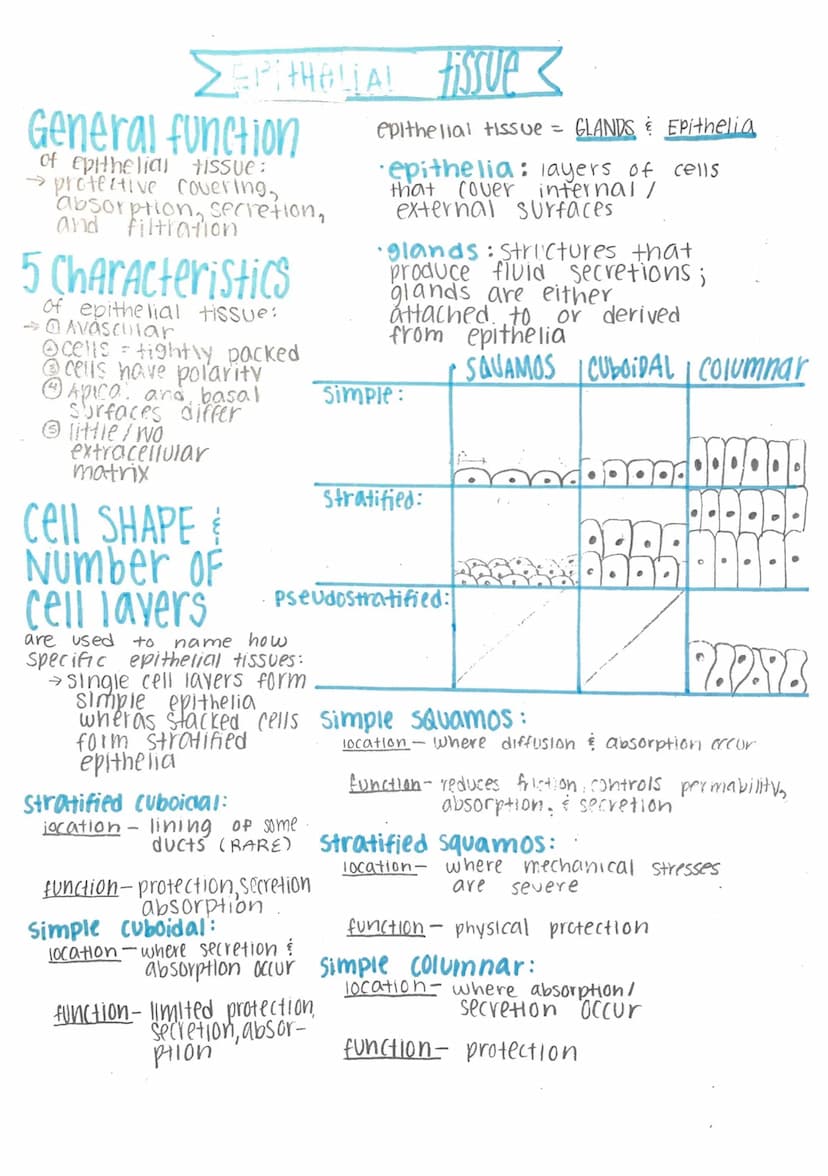 EPITHELIAL TISSUE
General function
of epithelial tissue:
→ protective covering,
absorption, secretion,
and filtration
5 Characteristics
of epithelial tissue:
→ ① Avascular
② cells = tightly packed
③ cells have polarity
④ Apical and basal
surfaces differ
⑤ little/no
extracellular
matrix
Cell SHAPE &
Number of
cell layers
are used to name how
specific epithelial tissues:
→ single cell layers form
simple epithelia
wheras stacked cells
form stratified
epithelia
Stratified cuboidal:
location - lining of some
ducts (RARE)
function - protection, secretion
absorption
Simple cuboidal:
location - where secretion &
absorption occur
function - limited protection,
secretion, absor-
ption
epithelial tissue = GLANDS & Epithelia
• epithelia: layers of cells
that cover internal/
external surfaces
• glands: structures that
produce fluid secretions;
glands are either
attached to or derived
from epithelia
SQUAMOS CUBOIDAL COLUMNAR
Simple:
Stratified:
Pseudostratified:
Simple squamos:
location - where diffusion & absorption occur
function - reduces friction, controls permability,
absorption, & secretion
Stratified squamos:
location - where mechanical stresses
are severe
function - physical protection
Simple columnar:
location - where absorption/
secretion occur
function - protection